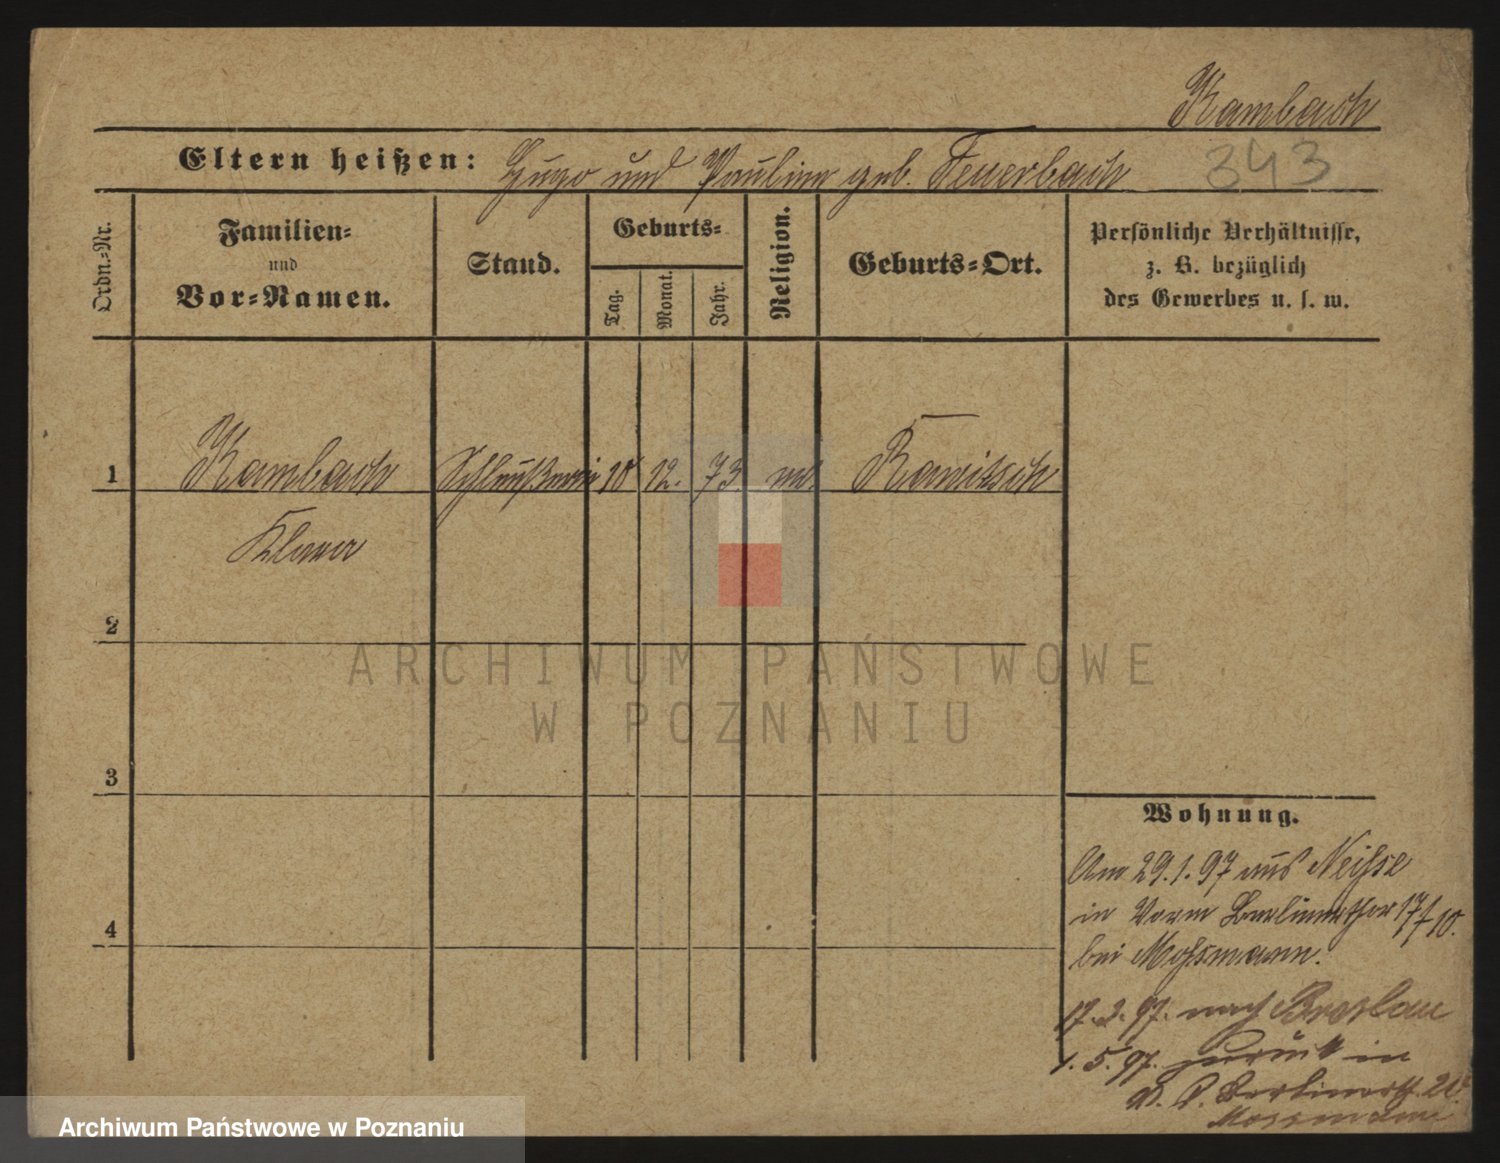 Kambach
Eltern heißen: Hugo und Pauline geb. Feuerbach 343
Ordn.-Nr.
Familien-
und
Vor-Namen.
Stand.
Geburts-
Tag.
Monat.
Jahr.
Religion.
Geburts-Ort.
Persönliche Verhältnisse,
z. B. bezüglich
des Gewerbes u. s. w.
1 Kambach 12. 73. Rawitsch
Klara
2
3
4
ARCHIWUM PAŃSTWOWE
W POZNANIU
Wohnung.
Am 29.1.97 aus Neisse
in Vorm Berlinerthor 17/10.
bei Mossmann.
17.3.97. nach Breslau
1.5.97. zurück in
Mossmann
Archiwum Państwowe w Poznaniu